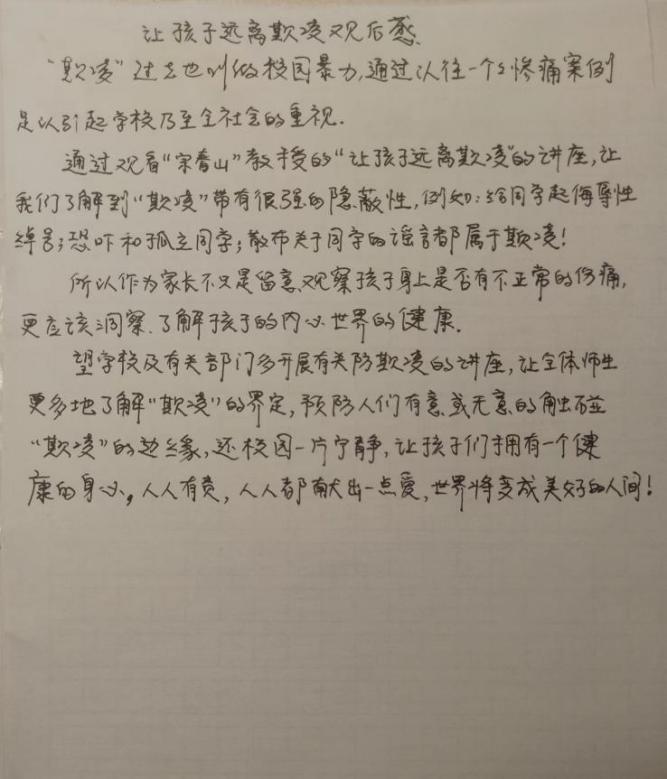 让孩子远离欺凌观后感
“欺凌”过去也叫做校园暴力,通过以往一个个惨痛案例
足以引起学校乃至全社会的重视.
通过观看“宗春山”教授的“让孩子远离欺凌”的讲座,让
我们了解到“欺凌”带有很强的隐蔽性,例如:给同学起侮辱性
绰号;恐吓和孤立同学;散布关于同学的谣言都属于欺凌!
所以作为家长不只是留意观察孩子身上是否有不正常的伤痛,
更应该洞察.了解孩子的内心世界的健康.
望学校及有关部门多开展有关防欺凌的讲座,让全体师生
更多地了解“欺凌”的界定,预防人们有意或无意的触碰
“欺凌”的边缘,还校园一片宁静,让孩子们拥有一个健
康的身心,人人有责,人人都献出一点爱,世界将变成美好的人间!